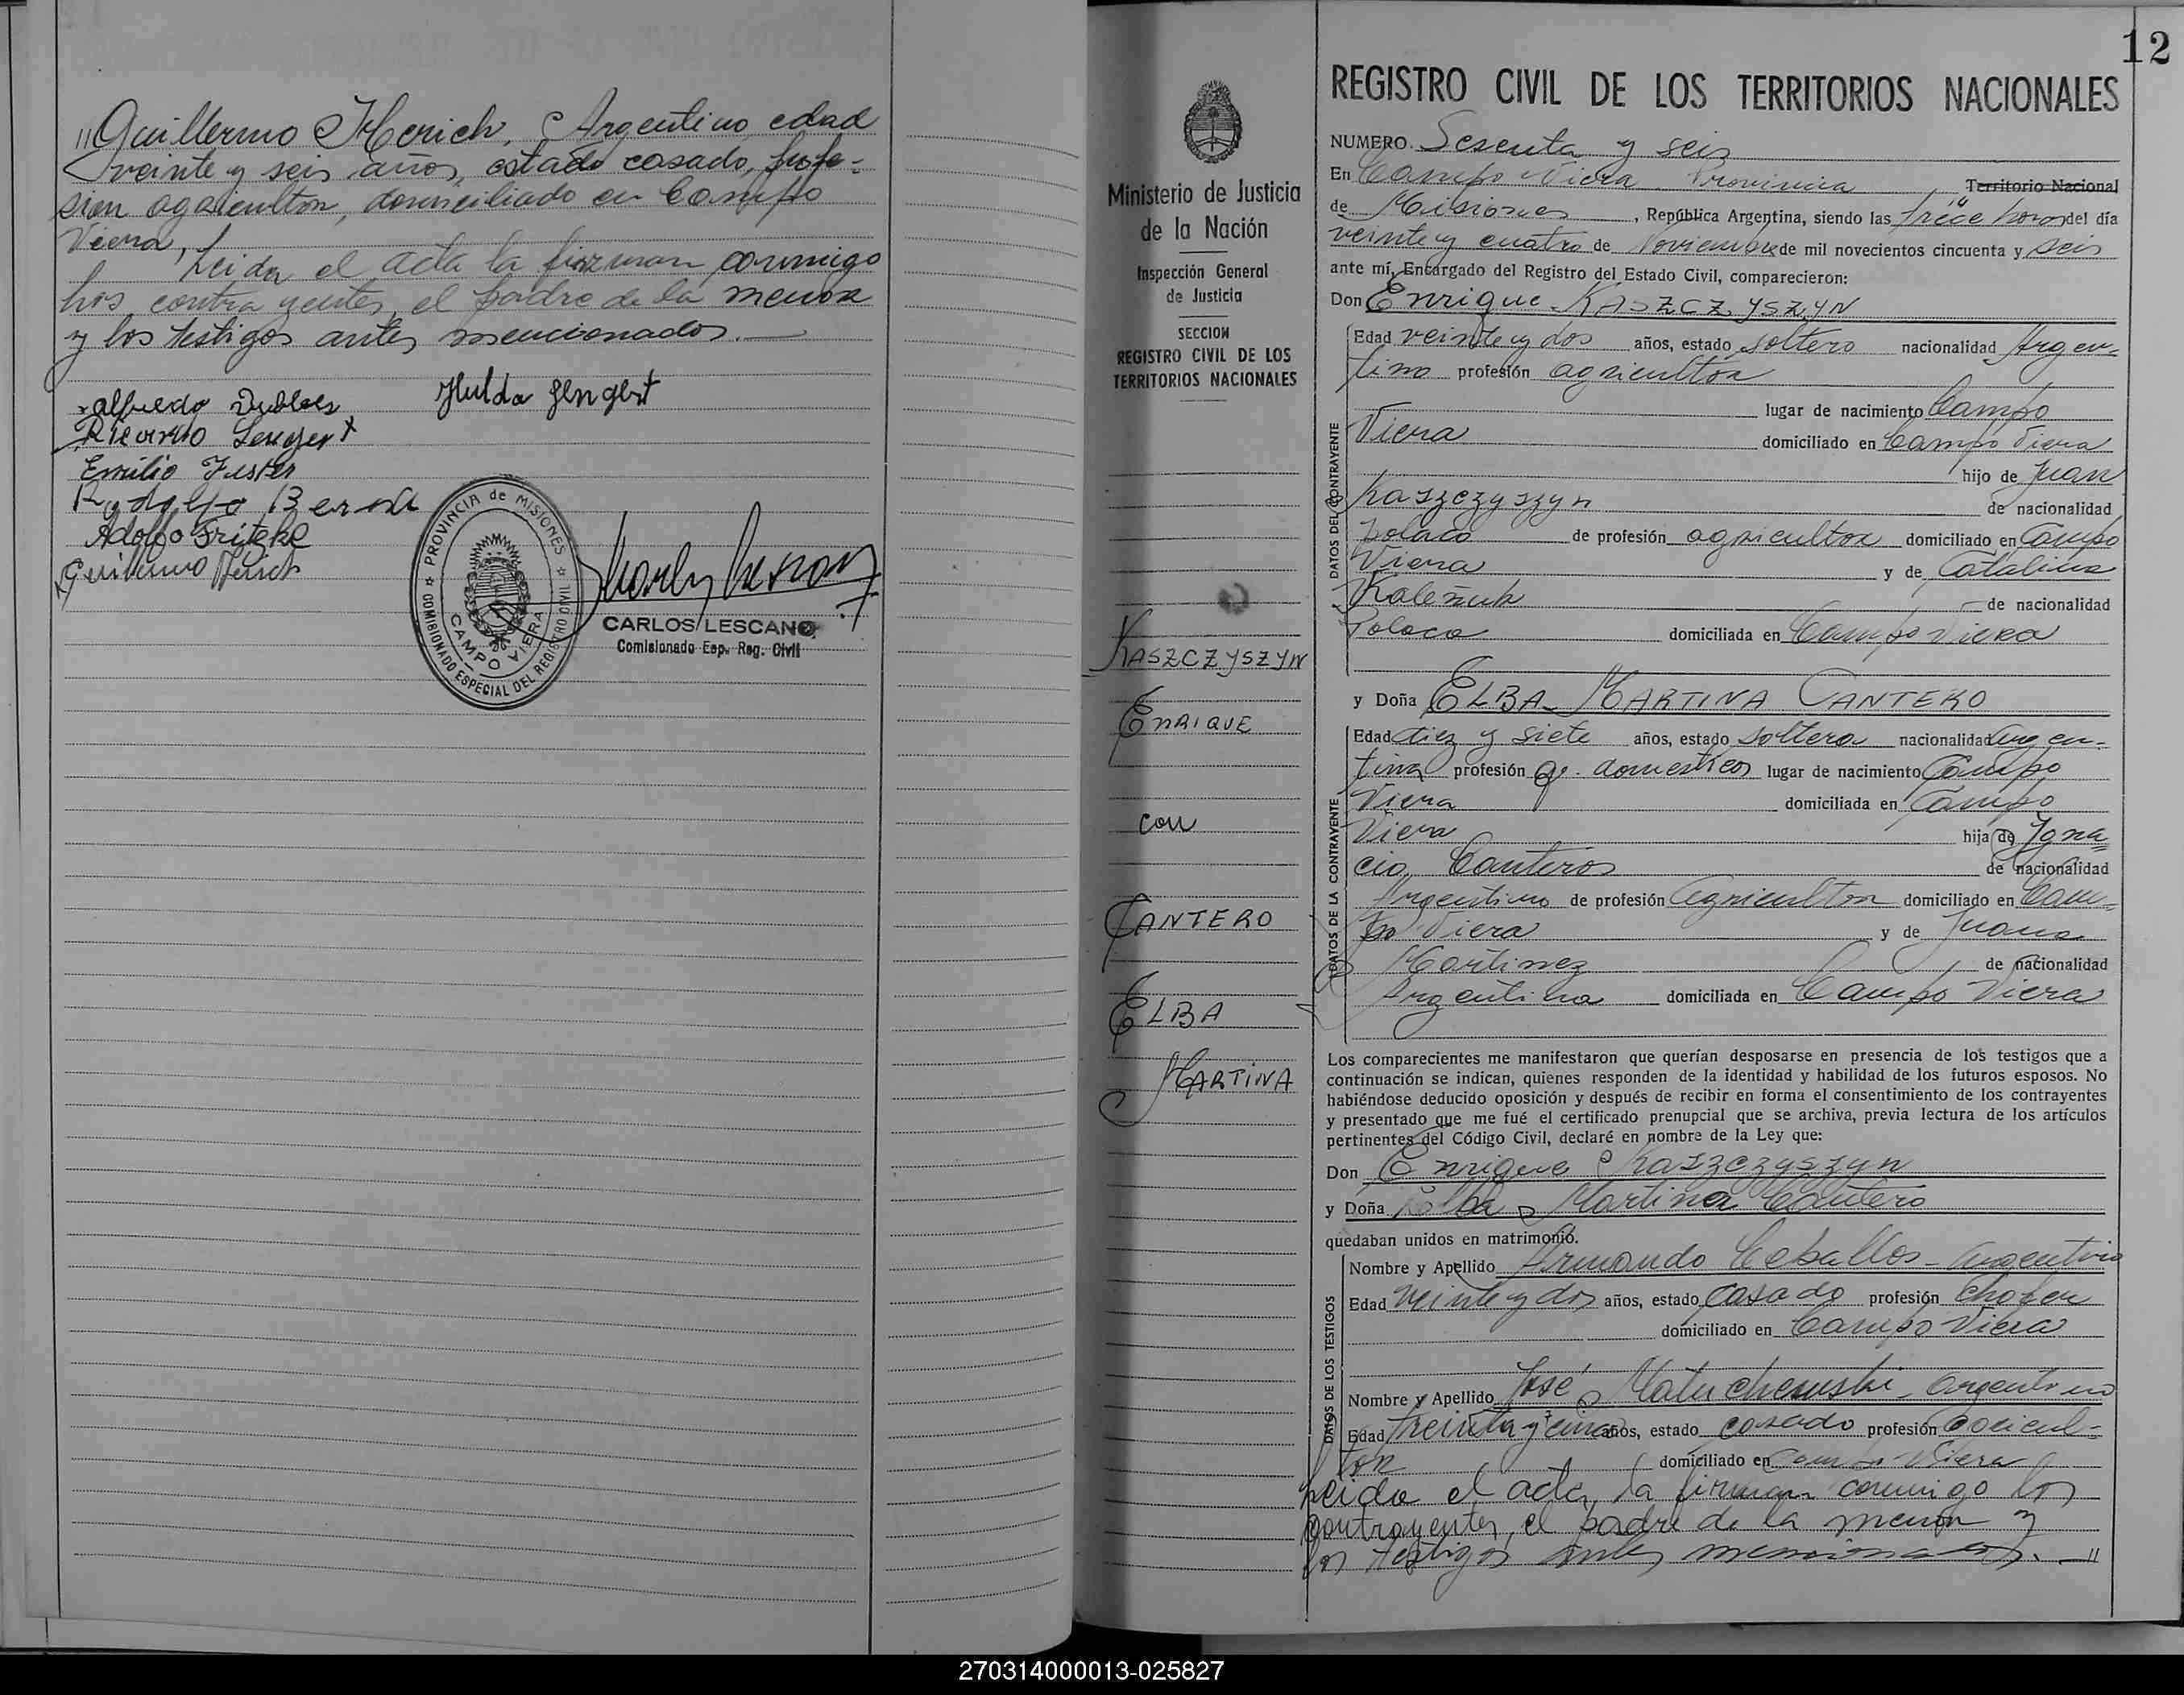 "Guillermo Merich, Argentino edad
veinte y seis años, estado casado, profe-
sion agricultor, domiciliado en Campo
Viera,
Leida el acta la firman conmigo
los contrayentes, el padre de la menor
y los testigos antes mencionados.—
Alfredo
Hulda Lengert
Ricardo Lengert
Emilio Fuster
Rodolfo
Adolfo Fritzke
Guillermo Merich
PROVINCIA de MISIONES
COMISIONADO ESPECIAL DEL REGISTRO CIVIL
CAMPO VIERA
CARLOS LESCANO
Comisionado Esp. Reg. Civil
12
Ministerio de Justicia
de la Nación
Inspección General
de Justicia
SECCION
REGISTRO CIVIL DE LOS
TERRITORIOS NACIONALES
KASZCZYSZYN
ENRIQUE
con
CANTERO
ELBA
MARTINA
REGISTRO CIVIL DE LOS TERRITORIOS NACIONALES
NUMERO. Sesenta y seis
En Campo Viera Provincia Territorio Nacional
de Misiones, República Argentina, siendo las trece horas del día
veinte y cuatro de Noviembre de mil novecientos cincuenta y seis
ante mí, Encargado del Registro del Estado Civil, comparecieron:
Don Enrique KASZCZYSZYN
DATOS DEL CONTRAYENTE
Edad veinte y dos años, estado soltero nacionalidad Argen-
tino profesión agricultor
lugar de nacimiento Campo
Viera domiciliado en Campo Viera
hijo de Juan
Kaszczyszyn de nacionalidad
Polaco de profesión agricultor domiciliado en Campo
Viera y de Catalina
Kaleñuk de nacionalidad
Polaca domiciliada en Campo Viera
y Doña ELBA MARTINA CANTERO
DATOS DE LA CONTRAYENTE
Edad diez y siete años, estado soltera nacionalidad Argen-
tina profesión q. domesticos lugar de nacimiento Campo
Viera domiciliada en Campo
Viera hija de Igna=
cio Canteros de nacionalidad
Argentino de profesión agricultor domiciliado en Cam-
po Viera y de Juana
Martinez de nacionalidad
Argentina domiciliada en Campo Viera
Los comparecientes me manifestaron que querían desposarse en presencia de los testigos que a
continuación se indican, quienes responden de la identidad y habilidad de los futuros esposos. No
habiéndose deducido oposición y después de recibir en forma el consentimiento de los contrayentes
y presentado que me fué el certificado prenupcial que se archiva, previa lectura de los artículos
pertinentes del Código Civil, declaré en nombre de la Ley que:
Don Enrique Kaszczyszyn
y Doña Elba Martina Cantero
quedaban unidos en matrimonio.
DATOS DE LOS TESTIGOS
Nombre y Apellido Armando Ceballos - Argentino
Edad veinte y dos años, estado casado profesión Chofer
domiciliado en Campo Viera
Nombre y Apellido José Matuchewski - Argentino
Edad treinta y cinco años, estado casado profesión agricul-
tor domiciliado en Campo Viera
Leida el acta, la firman conmigo los
contrayentes, el padre de la menor y
los testigos antes mencionados. —"
270314000013-025827